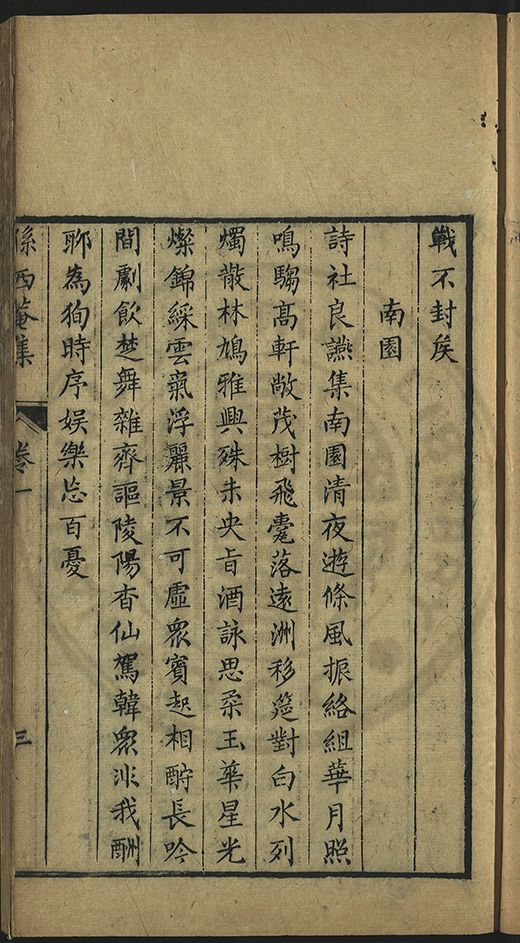 戰不封矦
南園
詩社良讌集南園清夜遊條風振絡組華月照
鳴騶髙軒敞茂樹飛甍落遠洲移筵對白水列
燭散林鳩雅興殊未央旨酒詠思柔玉華星光
燦錦綵雲氣浮麗景不可虛衆賓起相酧長吟
間劇飲楚舞雜齊謳陵陽杳仙駕韓衆非我酬
聊為狥時序娱樂忘百憂
孫西菴集
卷一
三